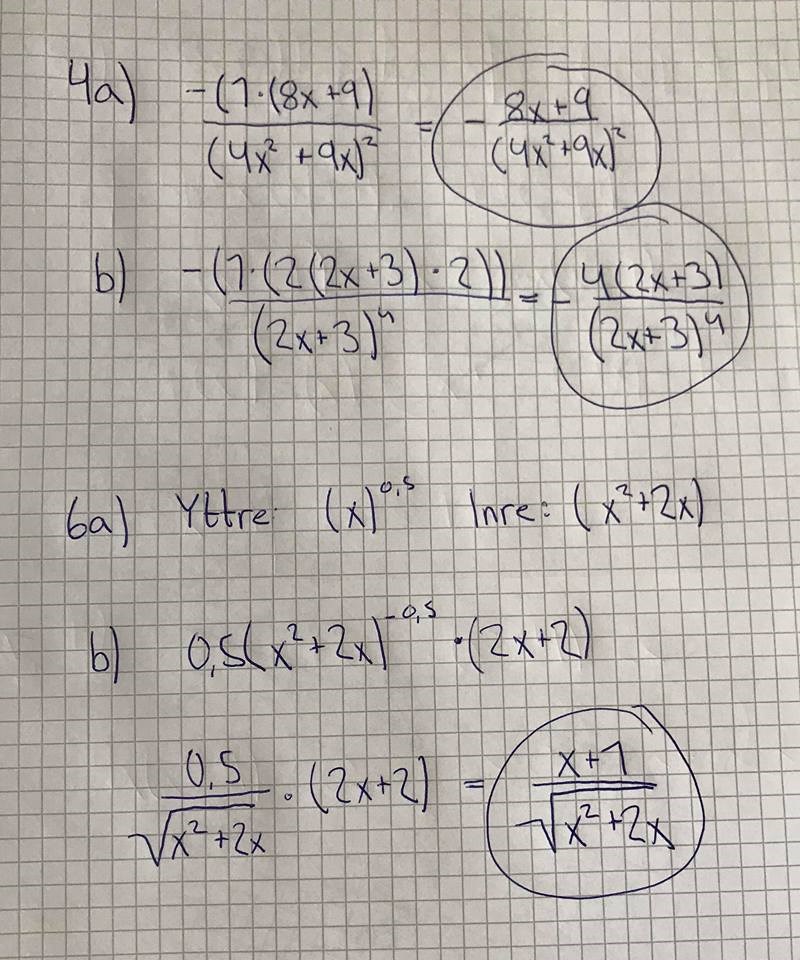 4a) -(1·(8x+9) / (4x² +9x)² = - 8x+9 / (4x²+9x)²
b) -(1·(2(2x+3)·2)) / (2x+3)⁴ = - 4(2x+3) / (2x+3)⁴
6a) Yttre: (x)^0,5 Inre: (x²+2x)
b) 0,5(x²+2x)^-0,5 ·(2x+2)
0,5 / √x²+2x · (2x+2) = x+1 / √x²+2x